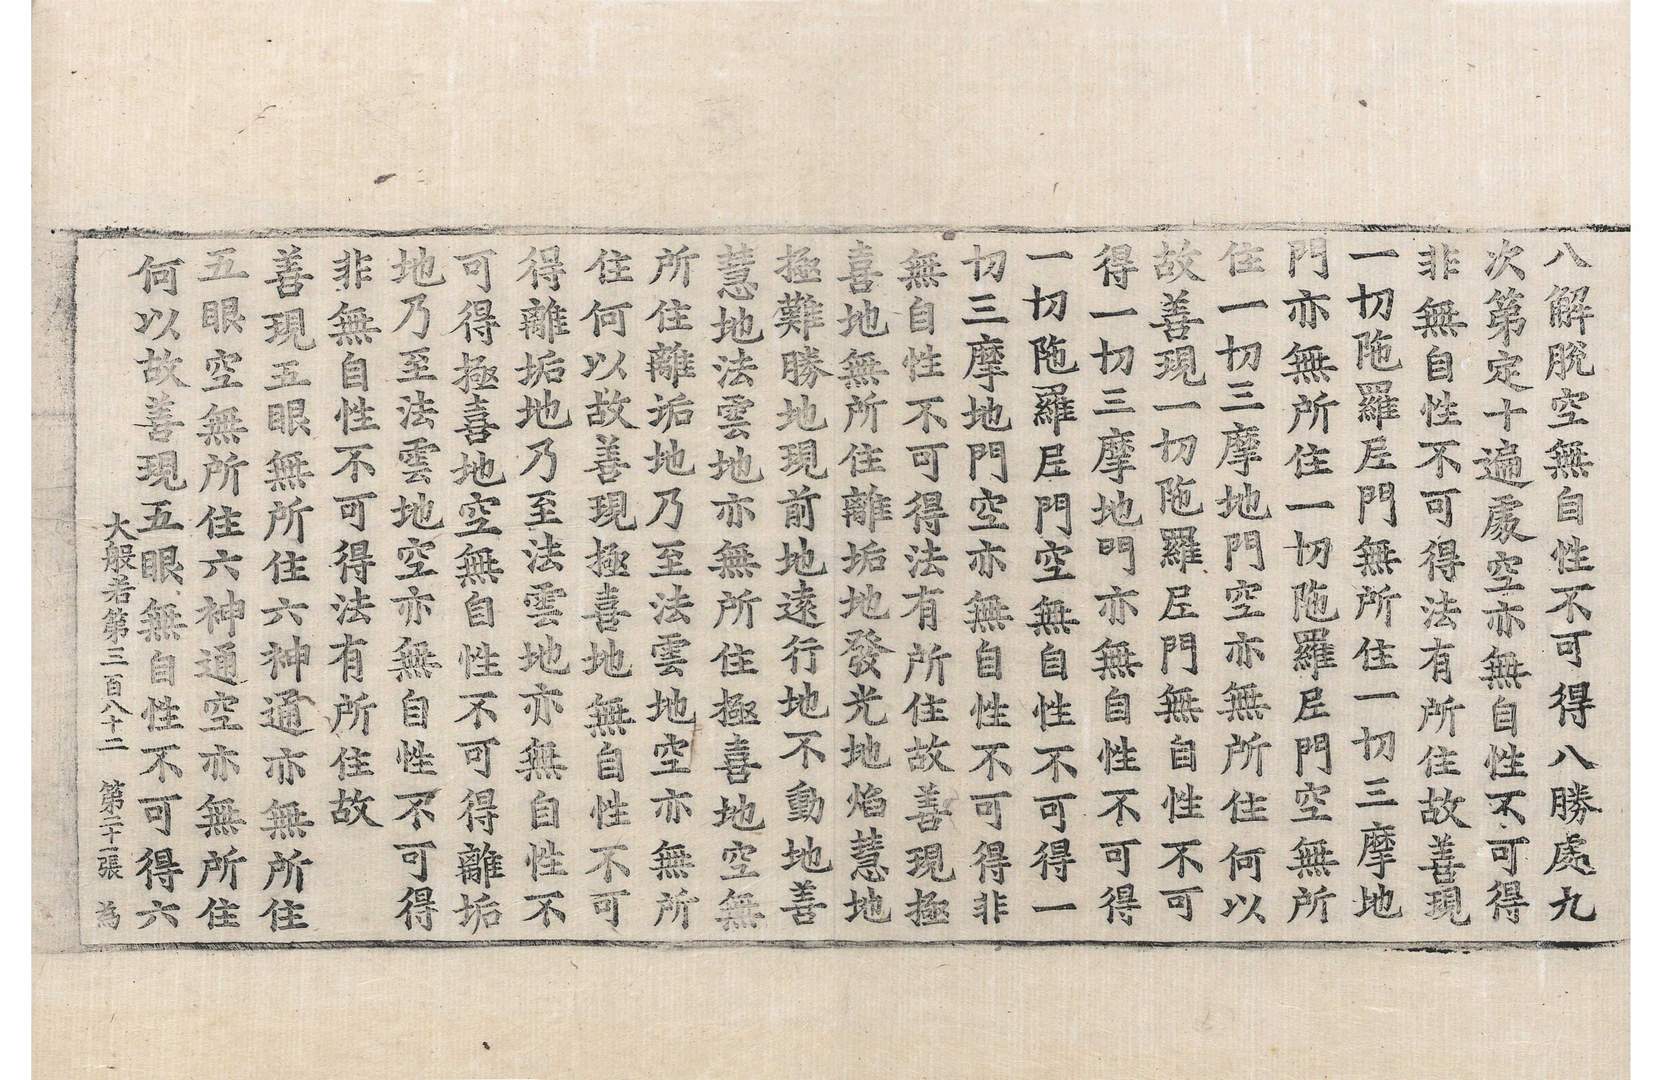 八解脫空無自性不可得八勝處九
次第定十遍處空亦無自性不可得
非無自性不可得法有所住故善現
一切陁羅尼門無所住一切三摩地
門亦無所住一切陁羅尼門空無所
住一切三摩地門空亦無所住何以
故善現一切陁羅尼門無自性不可
得一切三摩地門亦無自性不可得
一切陁羅尼門空無自性不可得一
切三摩地門空亦無自性不可得非
無自性不可得法有所住故善現極
喜地無所住離垢地發光地焰慧地
極難勝地現前地遠行地不動地善
慧地法雲地亦無所住極喜地空無
所住離垢地乃至法雲地空亦無所
住何以故善現極喜地無自性不可
得離垢地乃至法雲地亦無自性不
可得極喜地空無自性不可得離垢
地乃至法雲地空亦無自性不可得
非無自性不可得法有所住故
善現五眼無所住六神通亦無所住
五眼空無所住六神通空亦無所住
何以故善現五眼無自性不可得六
大般若第三百八十二 第二十一張 為